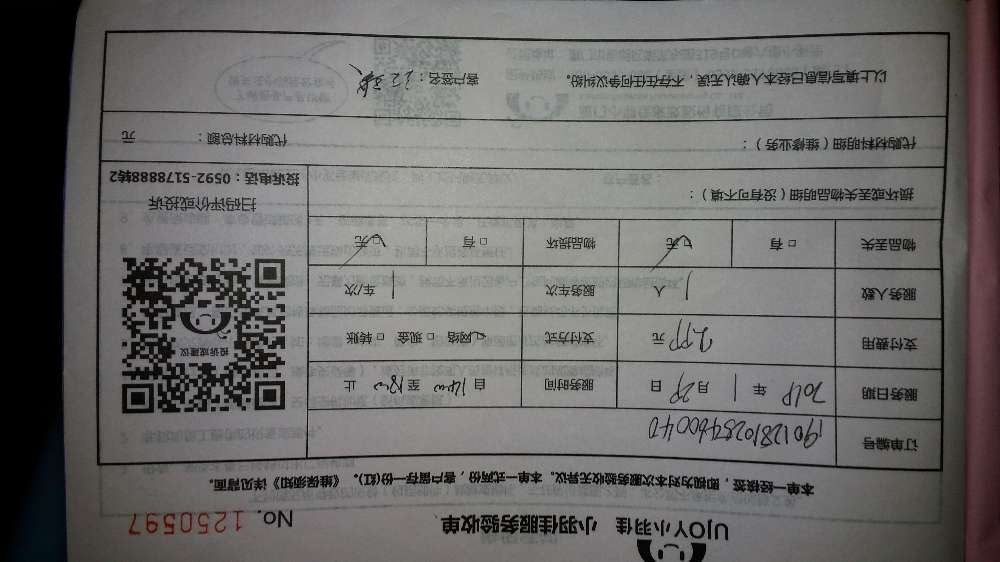 UJOY小羽佳 小羽佳服务验收单 No. 1250597
本单一经核签，即视为对本次服务验收无异议。本单一式两份，客户留存一份(红)。《维保须知》详见背面。
订单编号
服务日期 2019 年 1 月 29 日 服务时间 自 14:00 至 18:00 止
支付费用 299 元 支付方式 网络 □ 现金 □ 转账
服务人数 1 人 服务车次 1 车/次
物品丢失 □ 有 □ 无 物品损坏 □ 有 □ 无
投诉或建议
扫码评价或投诉
投诉电话：0592-5178888转2
损坏或丢失物品明细（没有可不填）：
代购材料明细（维修业务）： 代购材料总额： 元
以上填写信息已经本人确认无误，不存在任何争议纠纷。 客户签名：